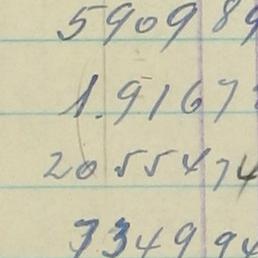 590989
1.91677
2055474
734994